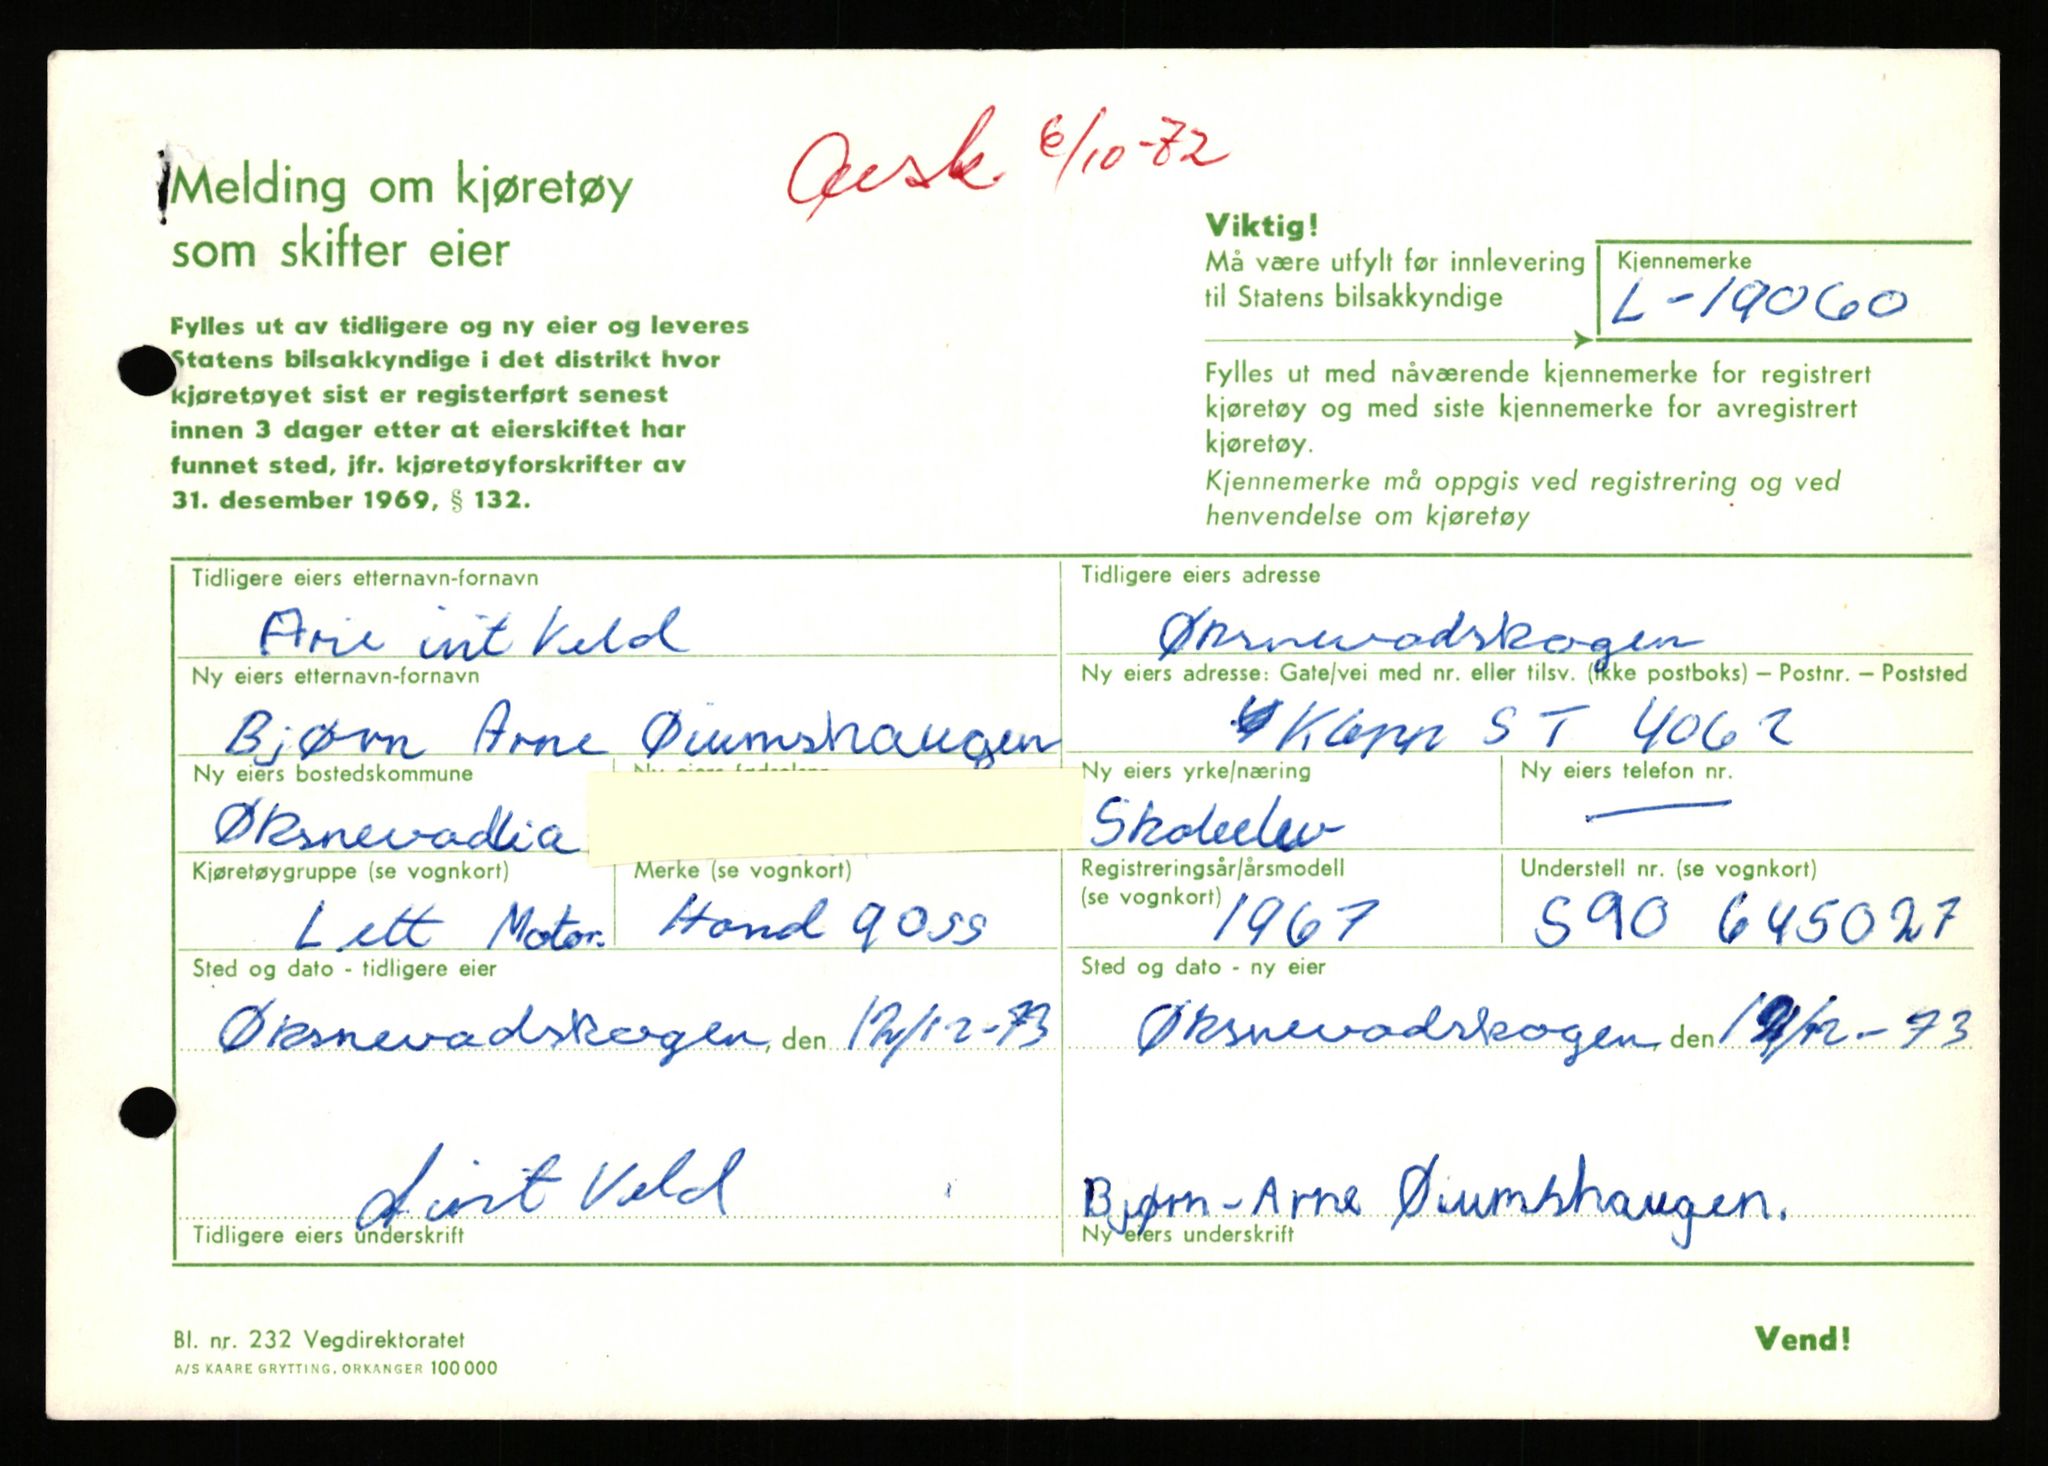 Avsk. 6/10-72
Melding om kjøretøy
som skifter eier
Fylles ut av tidligere og ny eier og leveres
Statens bilsakkyndige i det distrikt hvor
kjøretøyet sist er registerført senest
innen 3 dager etter at eierskiftet har
funnet sted, jfr. kjøretøyforskrifter av
31. desember 1969, § 132.
Viktig!
Må være utfylt før innlevering
til Statens bilsakkyndige
Kjennemerke
L-19060
Fylles ut med nåværende kjennemerke for registrert
kjøretøy og med siste kjennemerke for avregistrert
kjøretøy.
Kjennemerke må oppgis ved registrering og ved
henvendelse om kjøretøy
Tidligere eiers etternavn-fornavn
Arie int Veld
Tidligere eiers adresse
Øksnevadskogen
Ny eiers etternavn-fornavn
Bjørn Arne Øiumshaugen
Ny eiers adresse: Gate/vei med nr. eller tilsv. (ikke postboks) – Postnr. – Poststed
Klepp ST 4062
Ny eiers bostedskommune
Øksnevadlia
Ny eiers yrke/næring
Skoleelev
Ny eiers telefon nr.
—
Kjøretøygruppe (se vognkort)
Lett Motor.
Merke (se vognkort)
Hond 90ss
Registreringsår/årsmodell
(se vognkort)
1967
Understell nr. (se vognkort)
S90 645027
Sted og dato - tidligere eier
Øksnevadskogen, den 12/12-73
Sted og dato - ny eier
Øksnevadskogen, den 12/12-73
A int Veld
Tidligere eiers underskrift
Bjørn-Arne Øiumshaugen.
Ny eiers underskrift
Bl. nr. 232 Vegdirektoratet
A/S KAARE GRYTTING, ORKANGER 100 000
Vend!